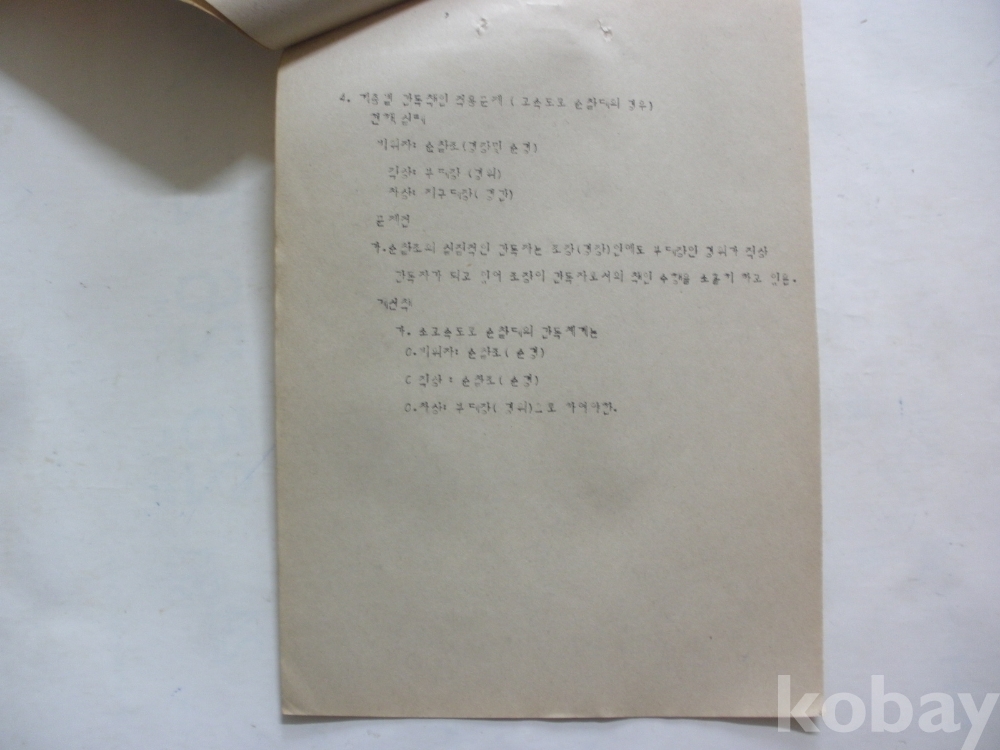 4. 기능별 감독책임 적용문제 ( 고속도로 순찰대의 경우)
실태
비위자: 순찰조(경장및 순경)
직상: 부대장 (경위)
차상: 지구대장( 경감)
문제점
가.순찰조의 실질적인 감독자는 조장(경장)인데도 부대장인 경위가 직상
감독자가 되고 있어 조장이 감독자로서의 책임 수행을 소홀히 하고 있음.
개선책
가. 고속도로 순찰대의 감독체계는
O.비위자: 순찰조( 순경)
O 직상 : 순찰조( 순경)
O.차상: 부대장( 경위)으로 하여야함.
kobay